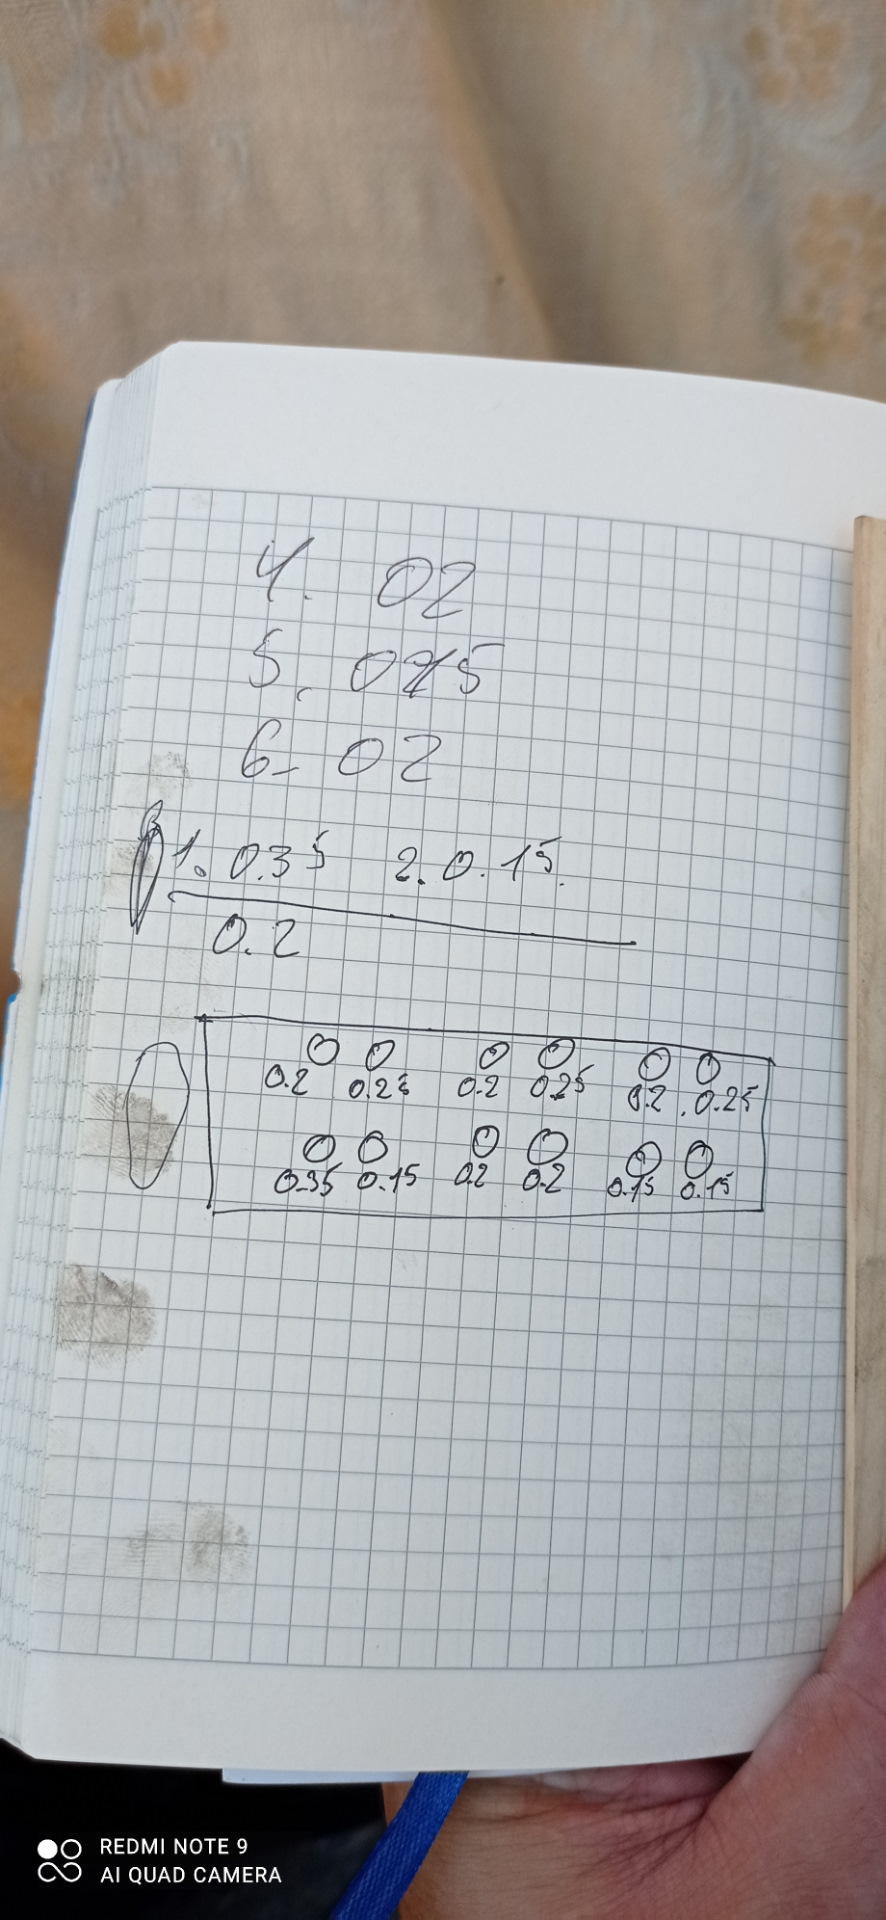 4. 02
5. 025
6- 02
1. 0.35 2. 0.15.
0.2
0.2 0.25 0.2 0.25 0.2 0.25
0.35 0.15 0.2 0.2 0.15 0.15
REDMI NOTE 9
AI QUAD CAMERA